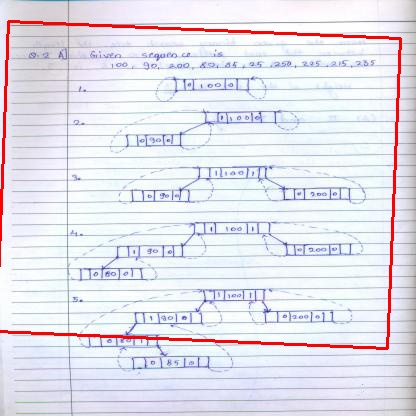 Q.2 A] Given sequence is
100, 90, 200, 80, 85, 25, 250, 225, 215, 235
1.
0 100 0
2.
1 100 0
0 90 0
3.
1 100 1
0 90 0 0 200 0
4.
1 100 1
1 90 0 0 200 0
0 80 0
5.
1 100 1
1 90 0 0 200 0
0 80 1
0 85 0